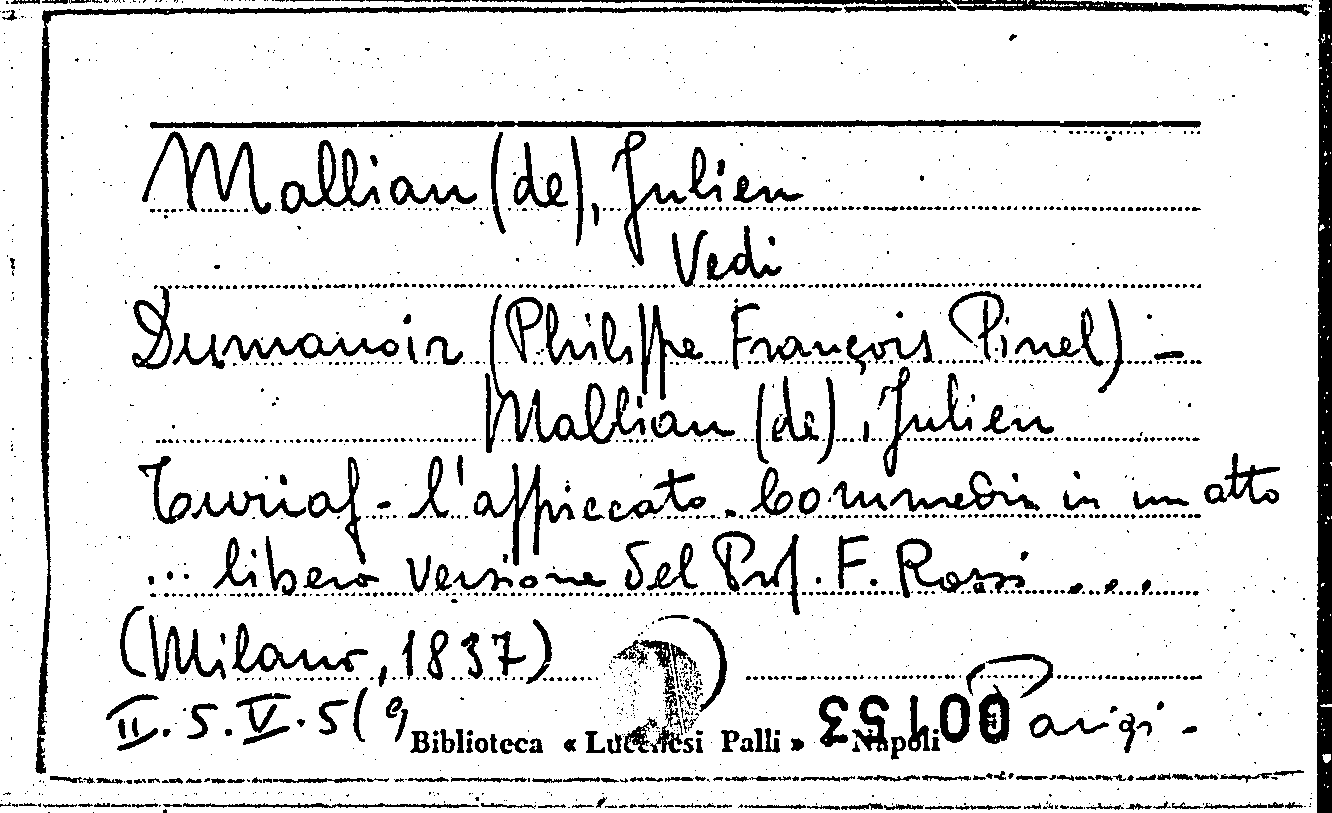 Mallian (de), Julien
Vedi
Dumanoir (Philippe François Pinel) -
Mallian (de), Julien
Turiaf - l'appiccato. Commedia in un atto
... libera versione del Prof. F. Rossi ...
(Milano, 1837)
II. 5. V. 5 (9 Parigi -
Biblioteca « Lucchesi Palli » - Napoli